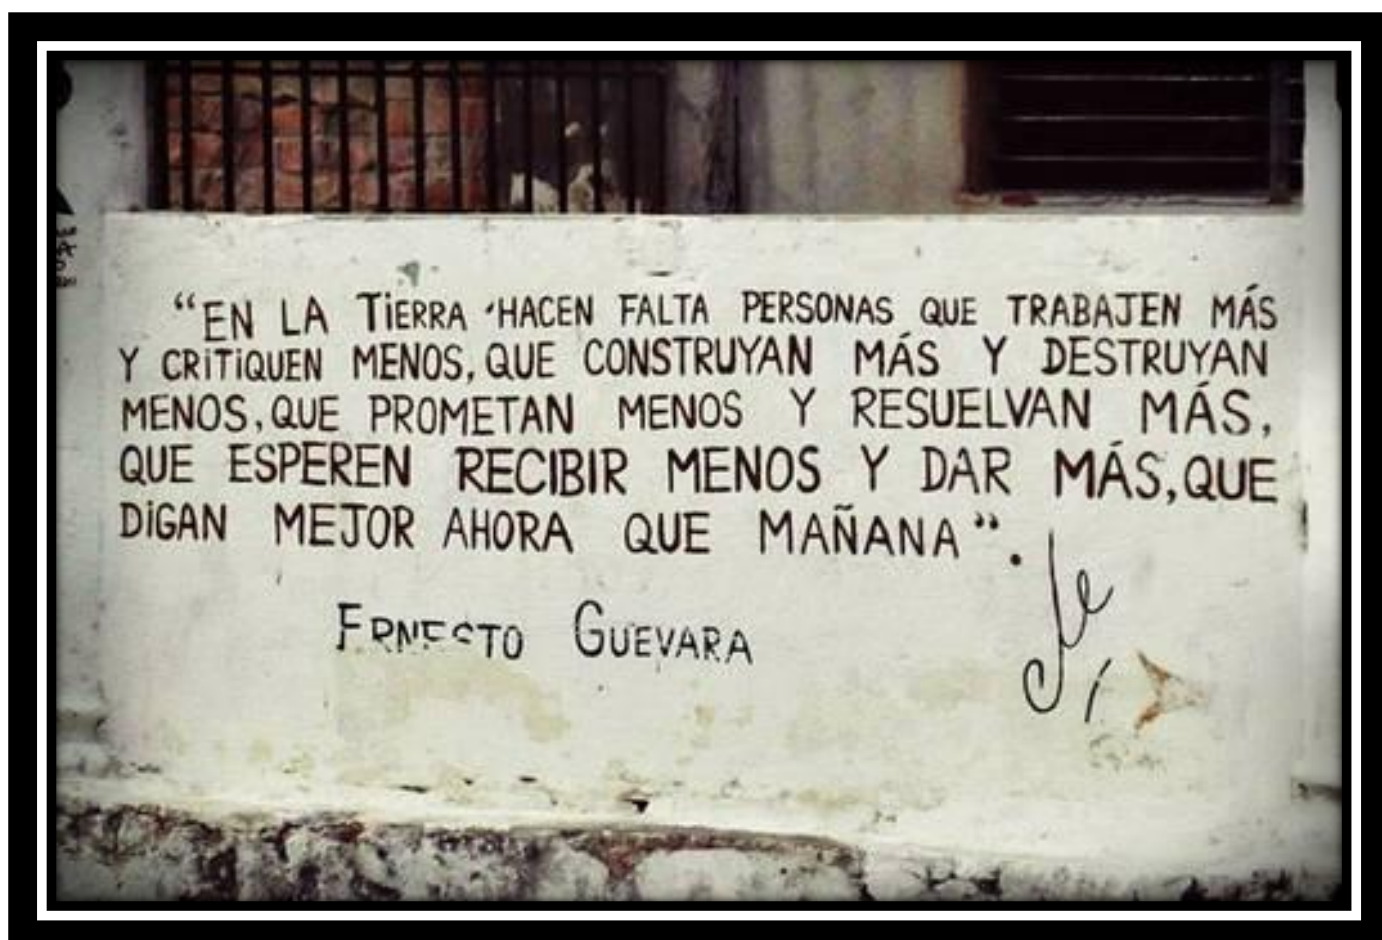 “EN LA TiERRA ‘HACEN FALTA PERSONAS QUE TRABAJEN MÁS
Y CRiTiQUEN MENOS, QUE CONSTRUYAN MÁS Y DESTRUYAN
MENOS, QUE PROMETAN MENOS Y RESUELVAN MÁS,
QUE ESPEREN RECIBIR MENOS Y DAR MÁS, QUE
DiGAN MEJOR AHORA QUE MAÑANA”.
ERNESTO GUEVARA